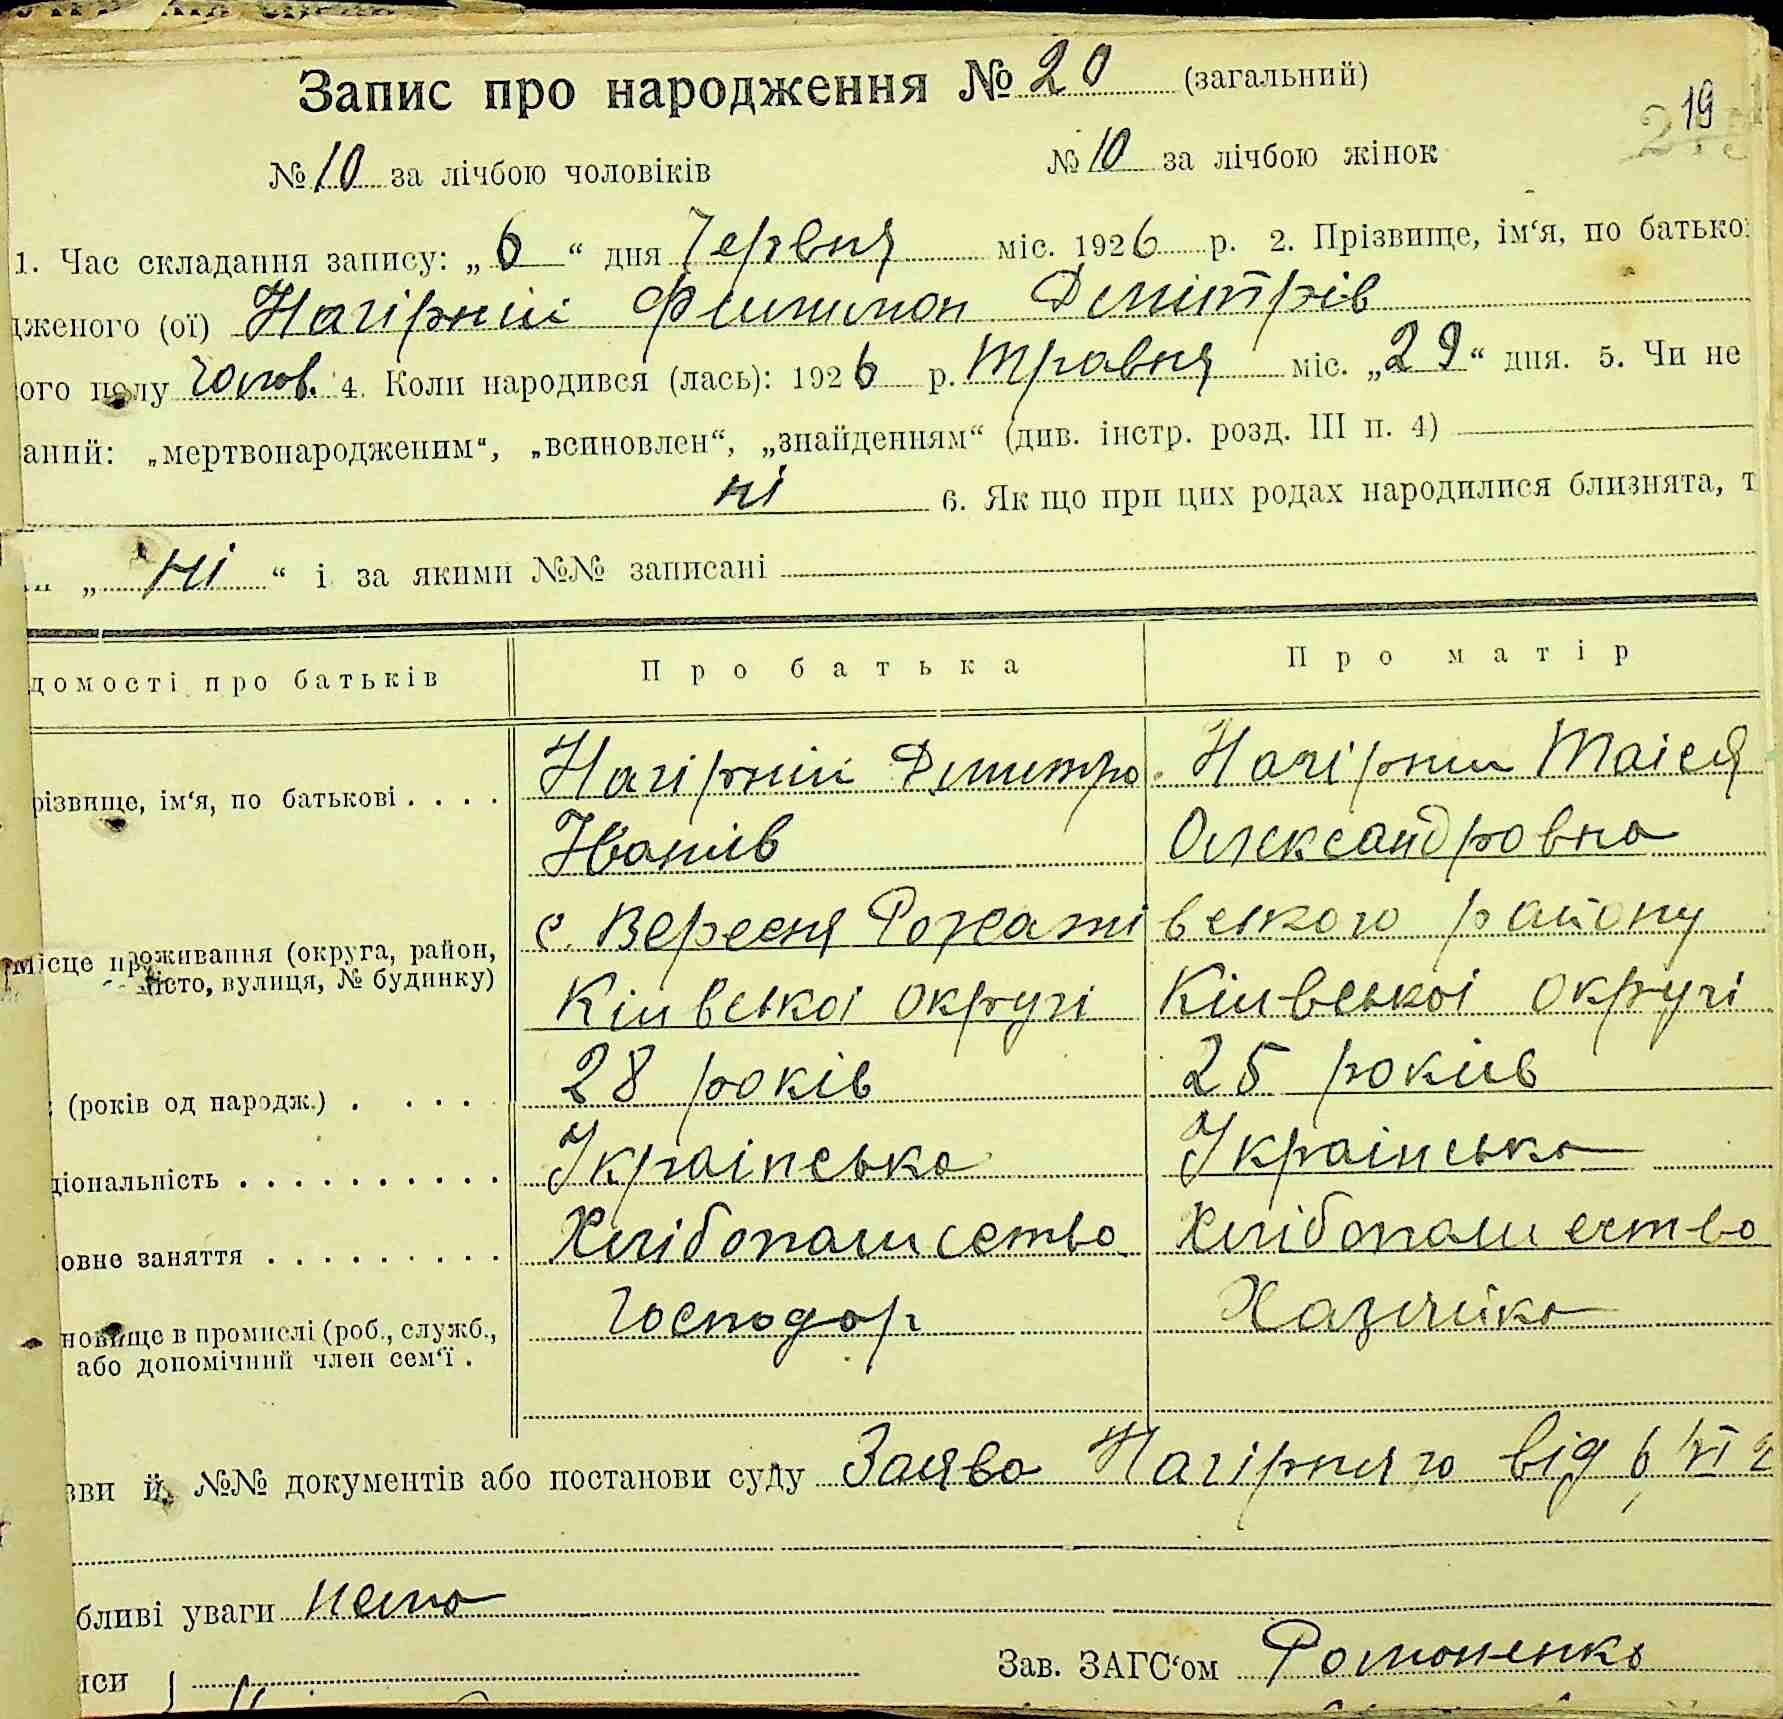 Запис про народження № 20 (загальний)
19
№ 10 за лічбою чоловіків № 10 за лічбою жінок
1. Час складання запису: „6“ дня Червня міс. 1926 р. 2. Прізвище, ім‘я, по батько
дженого (ої) Нагірний Филимон Дмітрів
ого полу Чолов. 4. Коли народився (лась): 1926 р. Травня міс. „29“ дня. 5. Чи не
аний: „мертвонародженим“, „всиновлен“, „знайденням“ (див. інстр. розд. III п. 4)
ні 6. Як що при цих родах народилися близнята, т
„ ні “ і за якими №№ записані
домості про батьків Про батька Про матір
різвище, ім‘я, по батькові . . . . Нагірний Дмитро Нагірни Таісія
Іванів Олександровна
с. Вересня Розважівського району
місце проживання (округа, район,
місто, вулиця, № будинку)
Киівськоі округи Киівськоі округи
(років од народж.) . . . . 28 років 25 років
ціональність . . . . . . . . . . Українська Українська
овне заняття . . . . . . . . . Хлібопашество Хлібопашество
новище в промислі (роб., служб., Господар Хазяйка
або допомічний член сем‘ї .
зви й №№ документів або постанови суду Заява Нагірняго від 6/VI 2
бливі уваги нема
иси Зав. ЗАГС‘ом Романенко